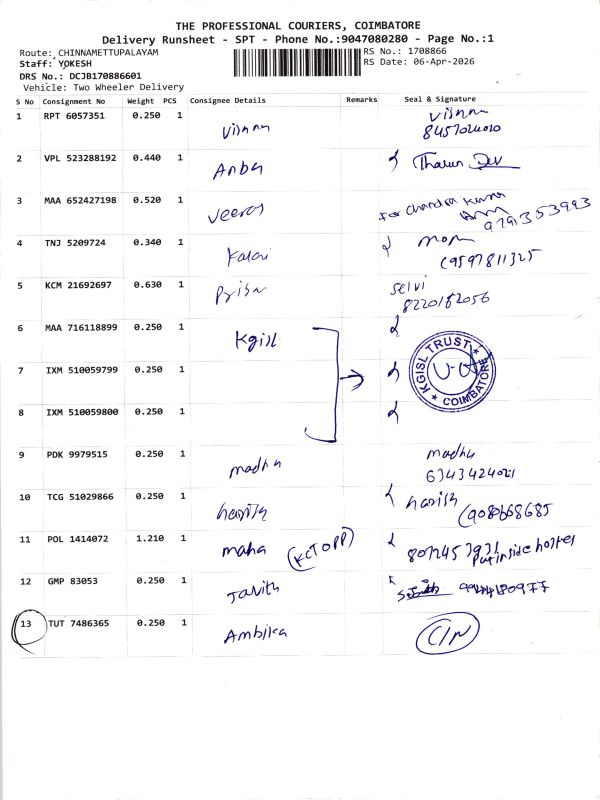 THE PROFESSIONAL COURIERS, COIMBATORE
Delivery Runsheet - SPT - Phone No.:9047080280 - Page No.:1
Route: CHINNAMETTUPALAYAM
RS No.: 1708866
Staff: YOKESH
RS Date: 06-Apr-2026
DRS No.: DCJB170886601
Vehicle: Two Wheeler Delivery
S No Consignment No Weight PCS Consignee Details Remarks Seal & Signature
1 RPT 6057351 0.250 1 Vishnu Vishnu
2 VPL 523288192 0.440 1 Anbu Tharun Dev
3 MAA 652427198 0.520 1 for Chandra Kumar
9791353993
4 TNJ 5209724 0.340 1 Kalai
9597811325
5 KCM 21692697 0.630 1 selvi
8220182056
6 MAA 716118899 0.250 1 Kgisl
KGISL TRUST
COIMBATORE
7 IXM 510059799 0.250 1
8 IXM 510059800 0.250 1
9 PDK 9979515 0.250 1 madhu madhu
10 TCG 51029866 0.250 1 harish harish
11 POL 1414072 1.210 1 maha (KCT OPP)
Put inside hostel
12 GMP 83053 0.250 1
13 TUT 7486365 0.250 1 Ambika C/N